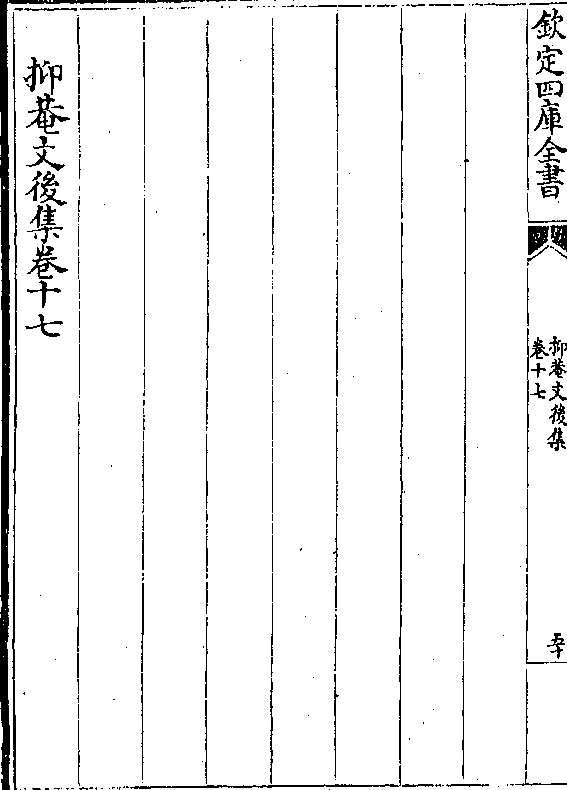 欽定四庫全書
抑菴文後集
卷十七
五十
抑菴文後集卷十七